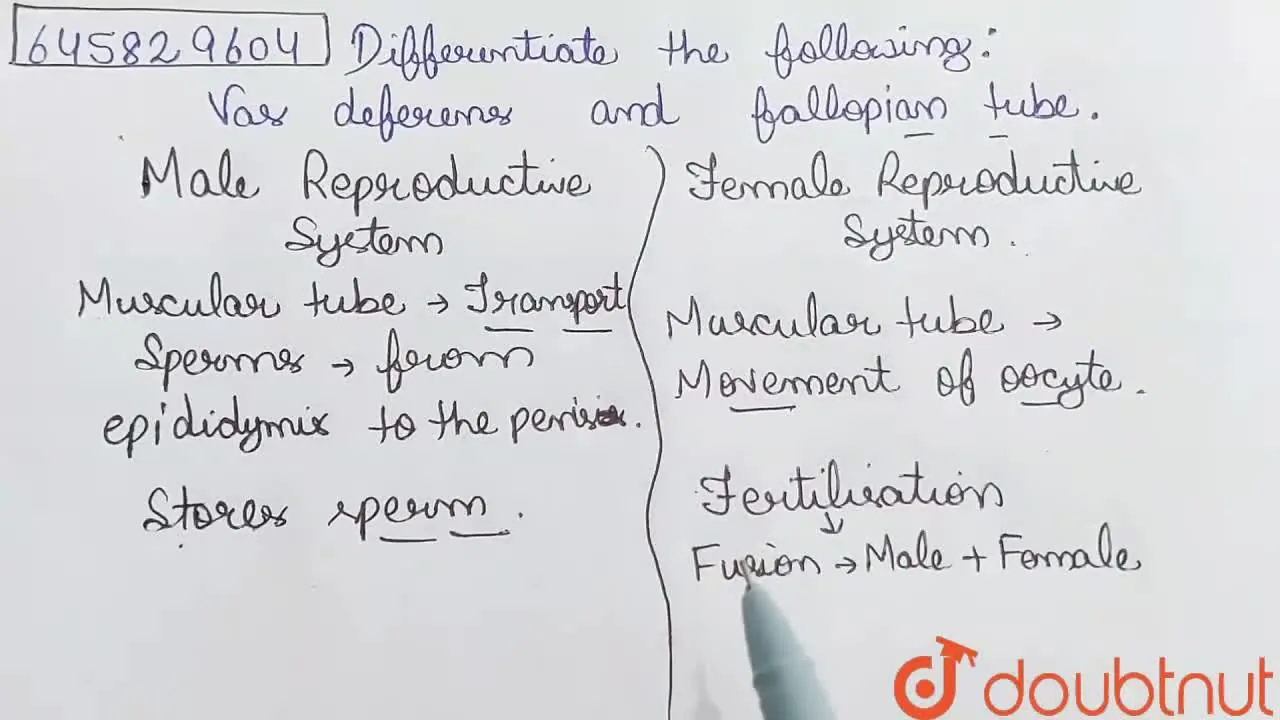 645829604 Differentiate the following:
Vas deferens and fallopian tube.
Male Reproductive
System
Muscular tube → Transport
Sperms → from
epididymis to the penis.
Stores sperm.
Female Reproductive
System.
Muscular tube →
Movement of oocyte.
Fertilisation
↓
Fusion → Male + Female
doubtnut